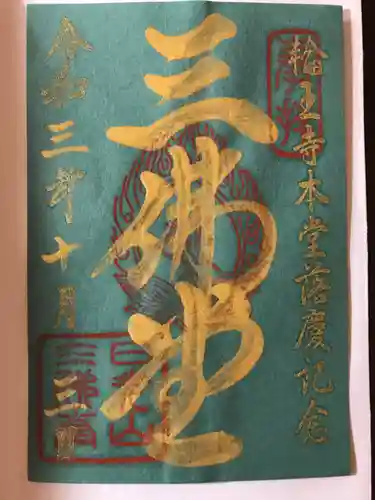 輪王寺本堂落慶記念
三佛堂
令和三年十月三日